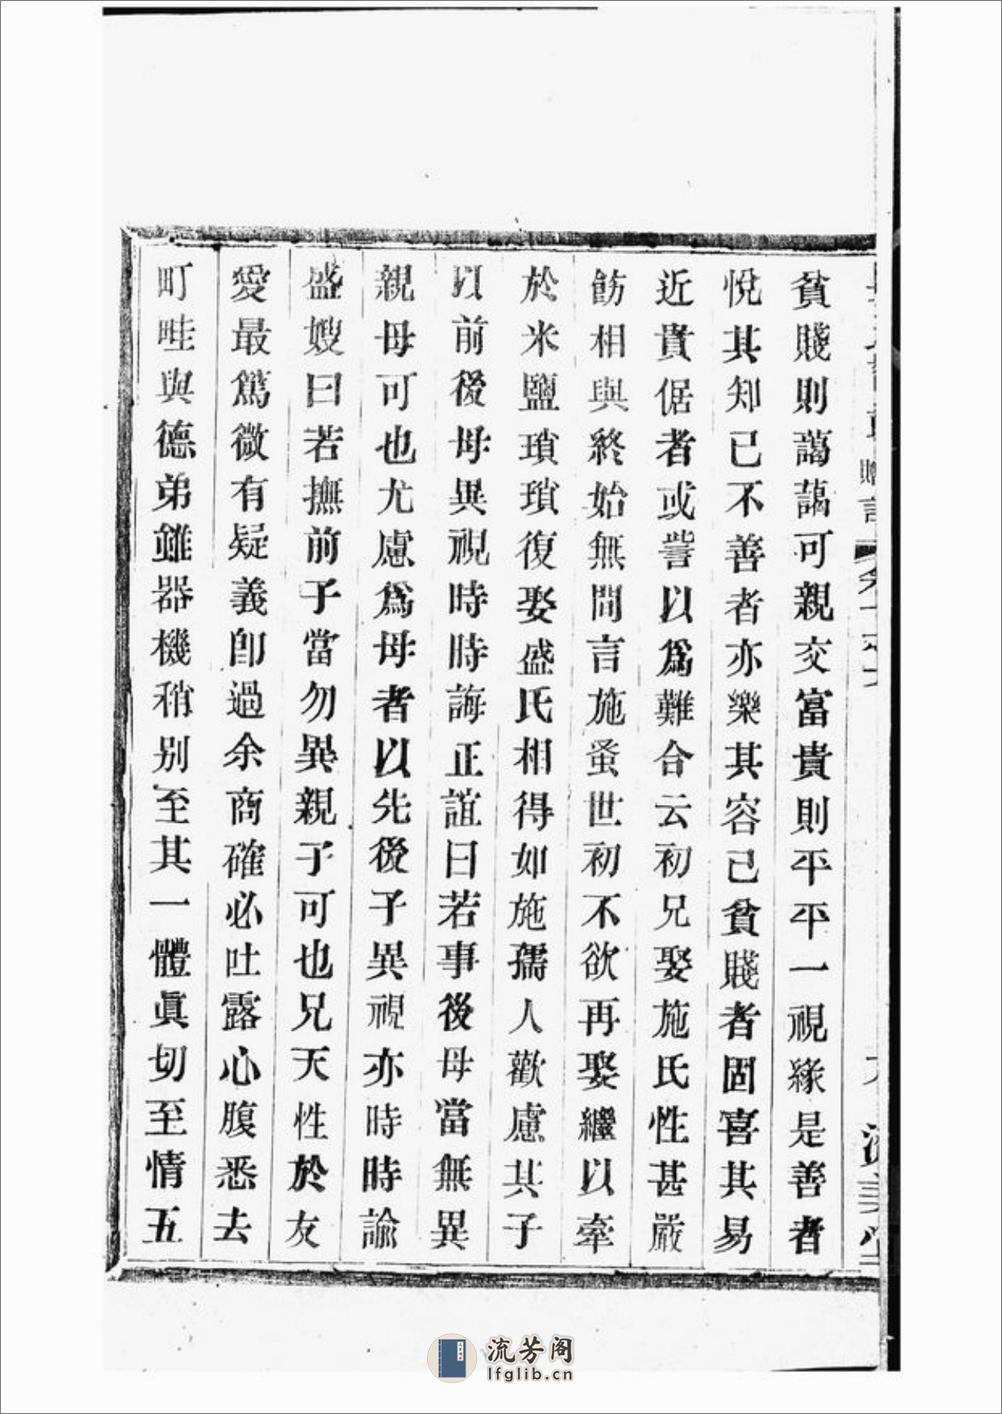 貧賤則藹藹可親交富貴則平平一視緣是善者
悅其知已不善者亦樂其容己貧賤者固喜其易
近貴倨者或訾以爲難合云初兄娶施氏性甚嚴
飭相與終始無間言施蚤世初不欲再娶繼以牽
於米鹽瑣瑣復娶盛氏相得如施孺人歡慮其子
以前後母異視時時誨正誼曰若事後母當無異
親母可也尤慮爲母者以先後子異視亦時時諭
盛嫂曰若撫前子當勿異親子可也兄天性於友
愛最篤微有疑義卽過余商確必吐露心腹悉去
町畦與德弟雖器機稍别至其一體眞切至情五
流芳阁
lfglib.cn